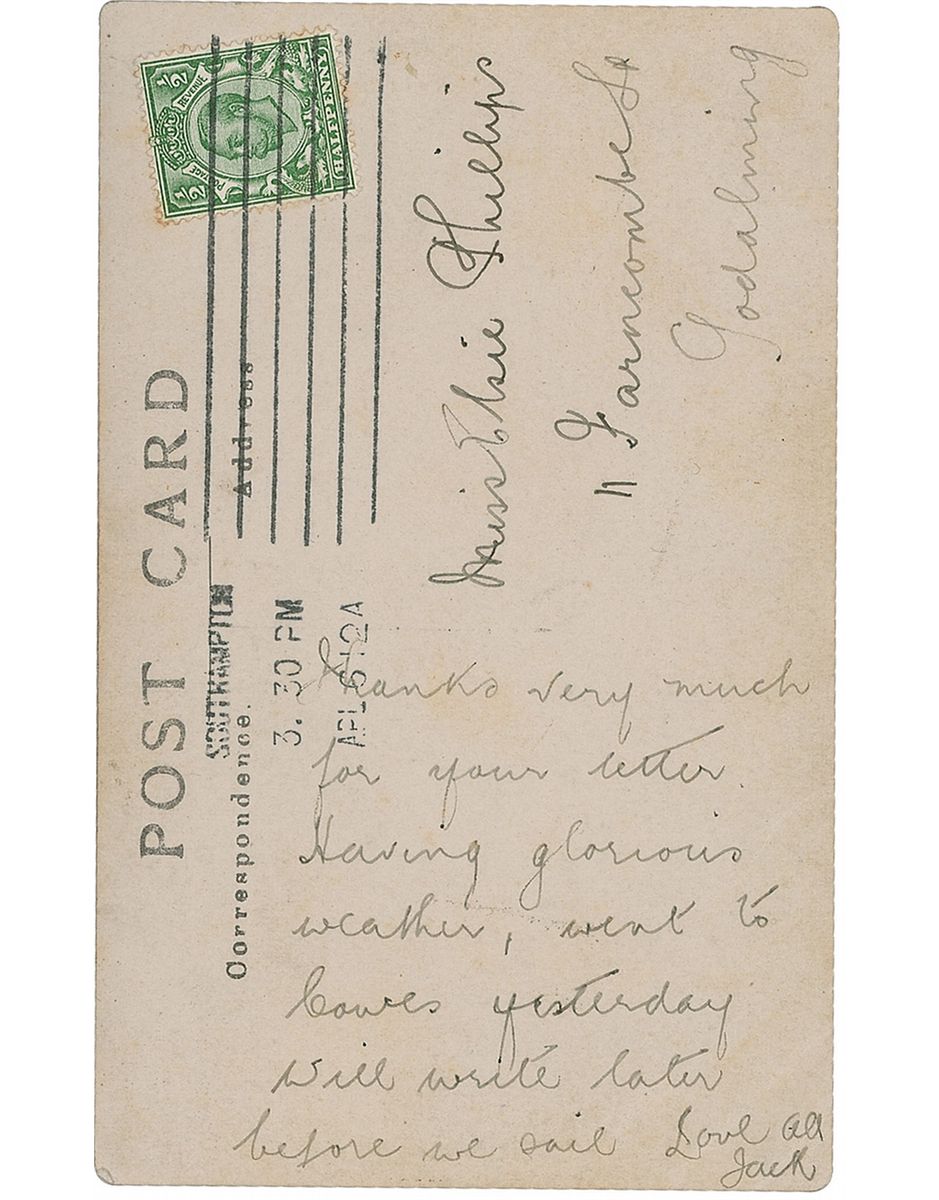 POST CARD
½ REVENUE
½ POSTAGE
HALFPENNY
SOUTHAMPTON
3. 30 PM
APL 6 12 A
Correspondence.
Address
Miss Elsie Phillips
11 Farncombe St
Godalming
Thanks very much
for your letter
Having glorious
weather, went to
Cowes yesterday
Will write later
before we sail Love all
Jack